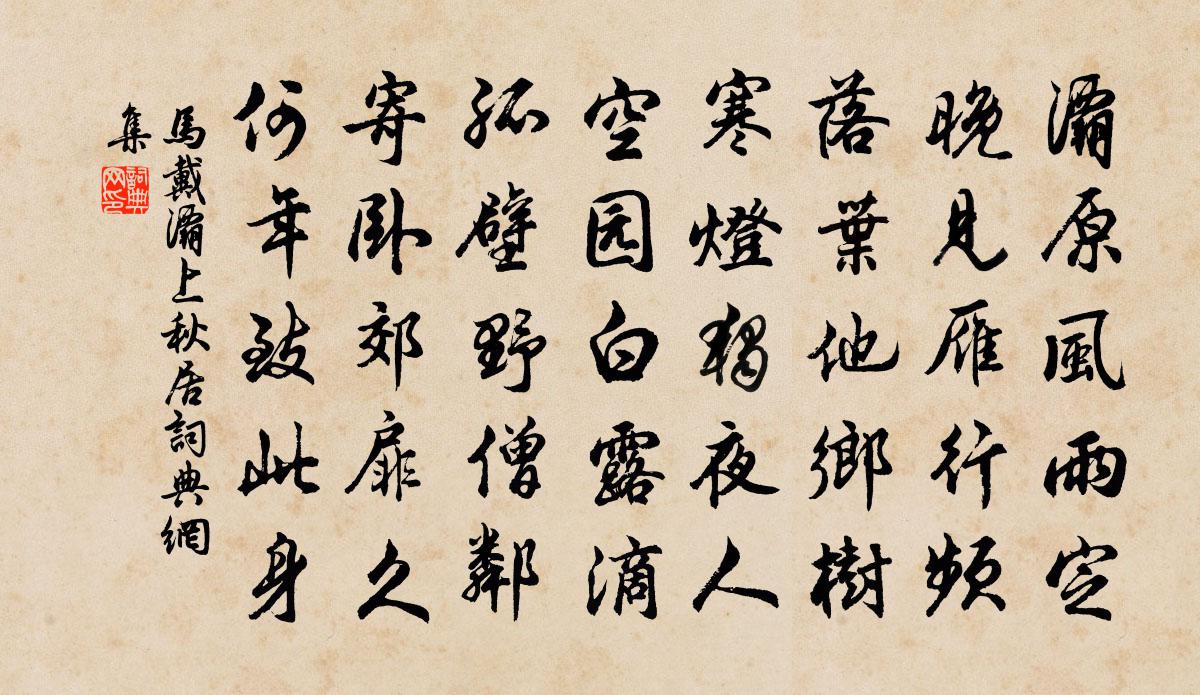 灞原風雨定
晚見雁行頻
落葉他鄉樹
寒燈獨夜人
空园白露滴
孤壁野僧鄰
寄卧郊扉久
何年致此身
馬戴灞上秋居詞典網
集
詞典
网印